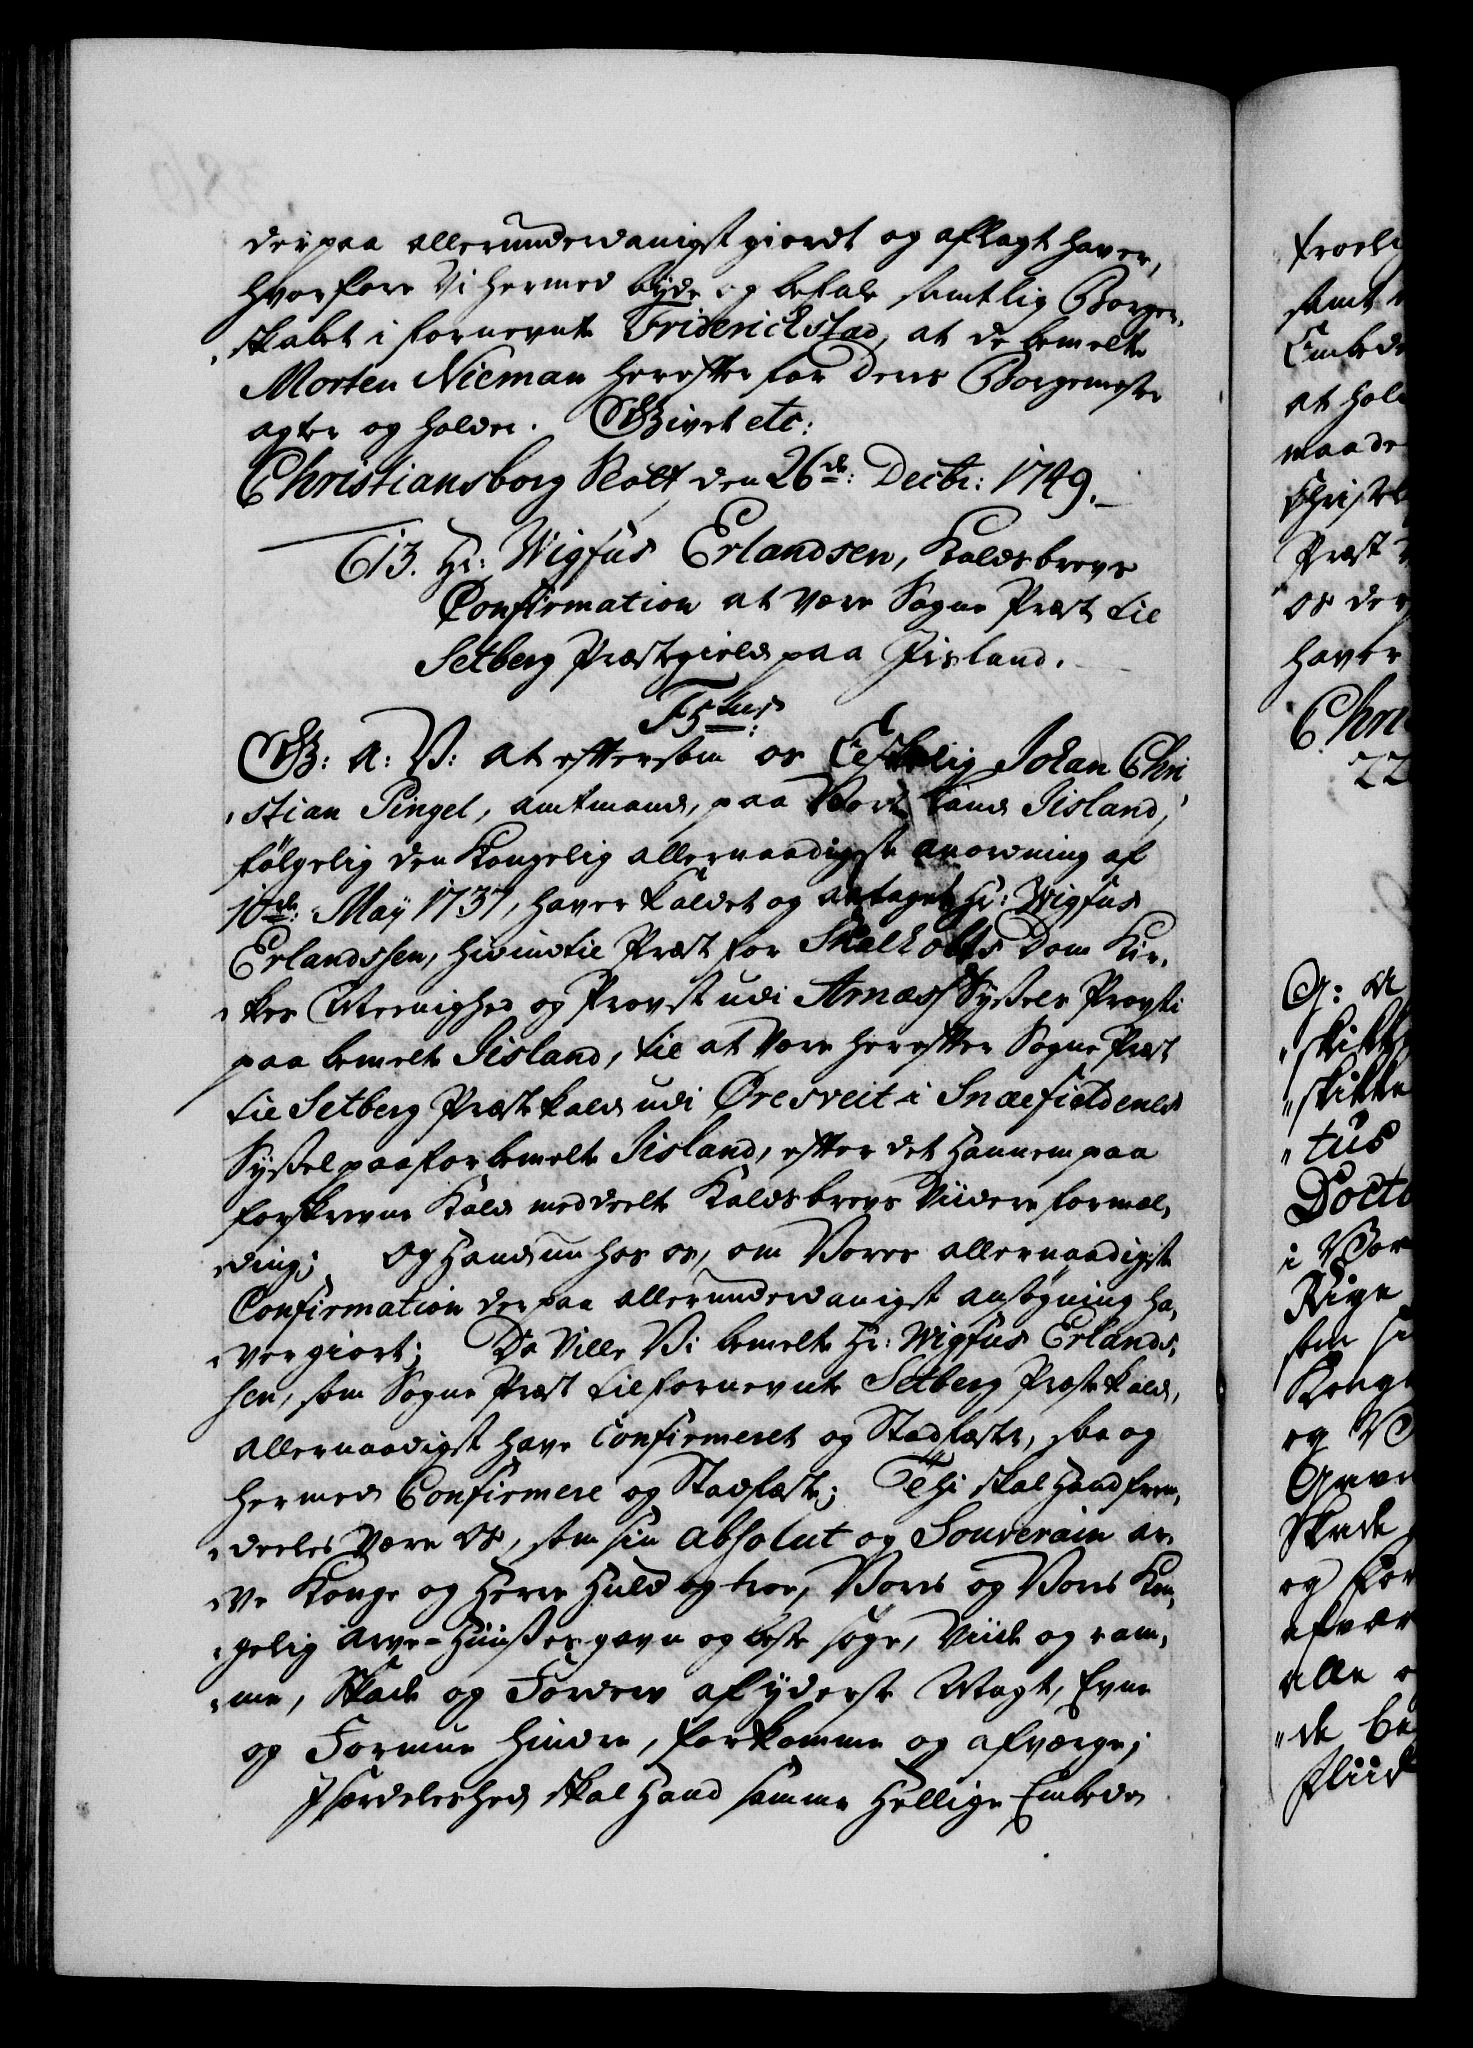 derpaa allerunderdanigst giordt og aflagt haver,
hvorfore Vi hermed byde og befale samtlig Borger-
skabet i fornevnte Friderichstad, at de bemelte
Morten Nieman herefter for Deris Borgemester
agter og holder. Givet etc:
Christiansborg Slott den 26de: Decbr: 1749.
613. Hr: Wigfus Erlandsen, Kaldsbrevs
Confirmation at være Sogne Præst til
Setberg Præstegield paa Jisland.
F5tus:
G: A: V: at eftersom os Elskelig Johan Chri-
stian Pingel, amtmand, paa Vort Land Jisland,
følgelig den Kongelig allernaadigste anordning af
10de: May 1737, haver kaldet og antaget Hr: Wigfus
Erlandssen, hidindtil Præst for Skalholts Dom Kir-
kes Meenighed og Provst udi Arness Syssels Provsti
paa bemelte Jisland, til at være herefter Sogne Præst
til Setberg Præstekald udi Øresveit i Snæefieldenes
Syssel paa forbemelte Jisland, efter det Hannem paa
forskrevne Kald meddeelte Kaldsbrevs Viidere formel-
ding; Og Hand nu hos os, om Vores allernaadigste
Confirmation derpaa allerunderdanigst ansøgning ha-
ver giort; Da Ville Vi bemelte Hr: Wigfus Erlands-
sen, som Sogne Præst til fornevnte Setberg Præstekald,
allernaadigst have Confirmeret og Stadfæste, saa og
hermed Confirmere og Stadfæste; Thi skal Hand frem-
deeles være Os, som sin absolut og Souverain ar-
ve Konge og Herre Huld og troe, Voris og Voris Kon-
gelig Arve-Huusses gavn og beste søge, Viide og ram-
me, Skade og Forderv af yderste Magt, Evne
og Formue hindre, forkomme og afværge;
J særdeleshed skal Hand samme Hellige Embede
troelig
samt
Embede
at hol
maade
Christel
Præst
os der
haver
Chri
22
G: A
skikke
skikke
tus
Docto
i Vor
Rige
som
Kong
og V
Skade
og For
afvær
alle
de be
fliid